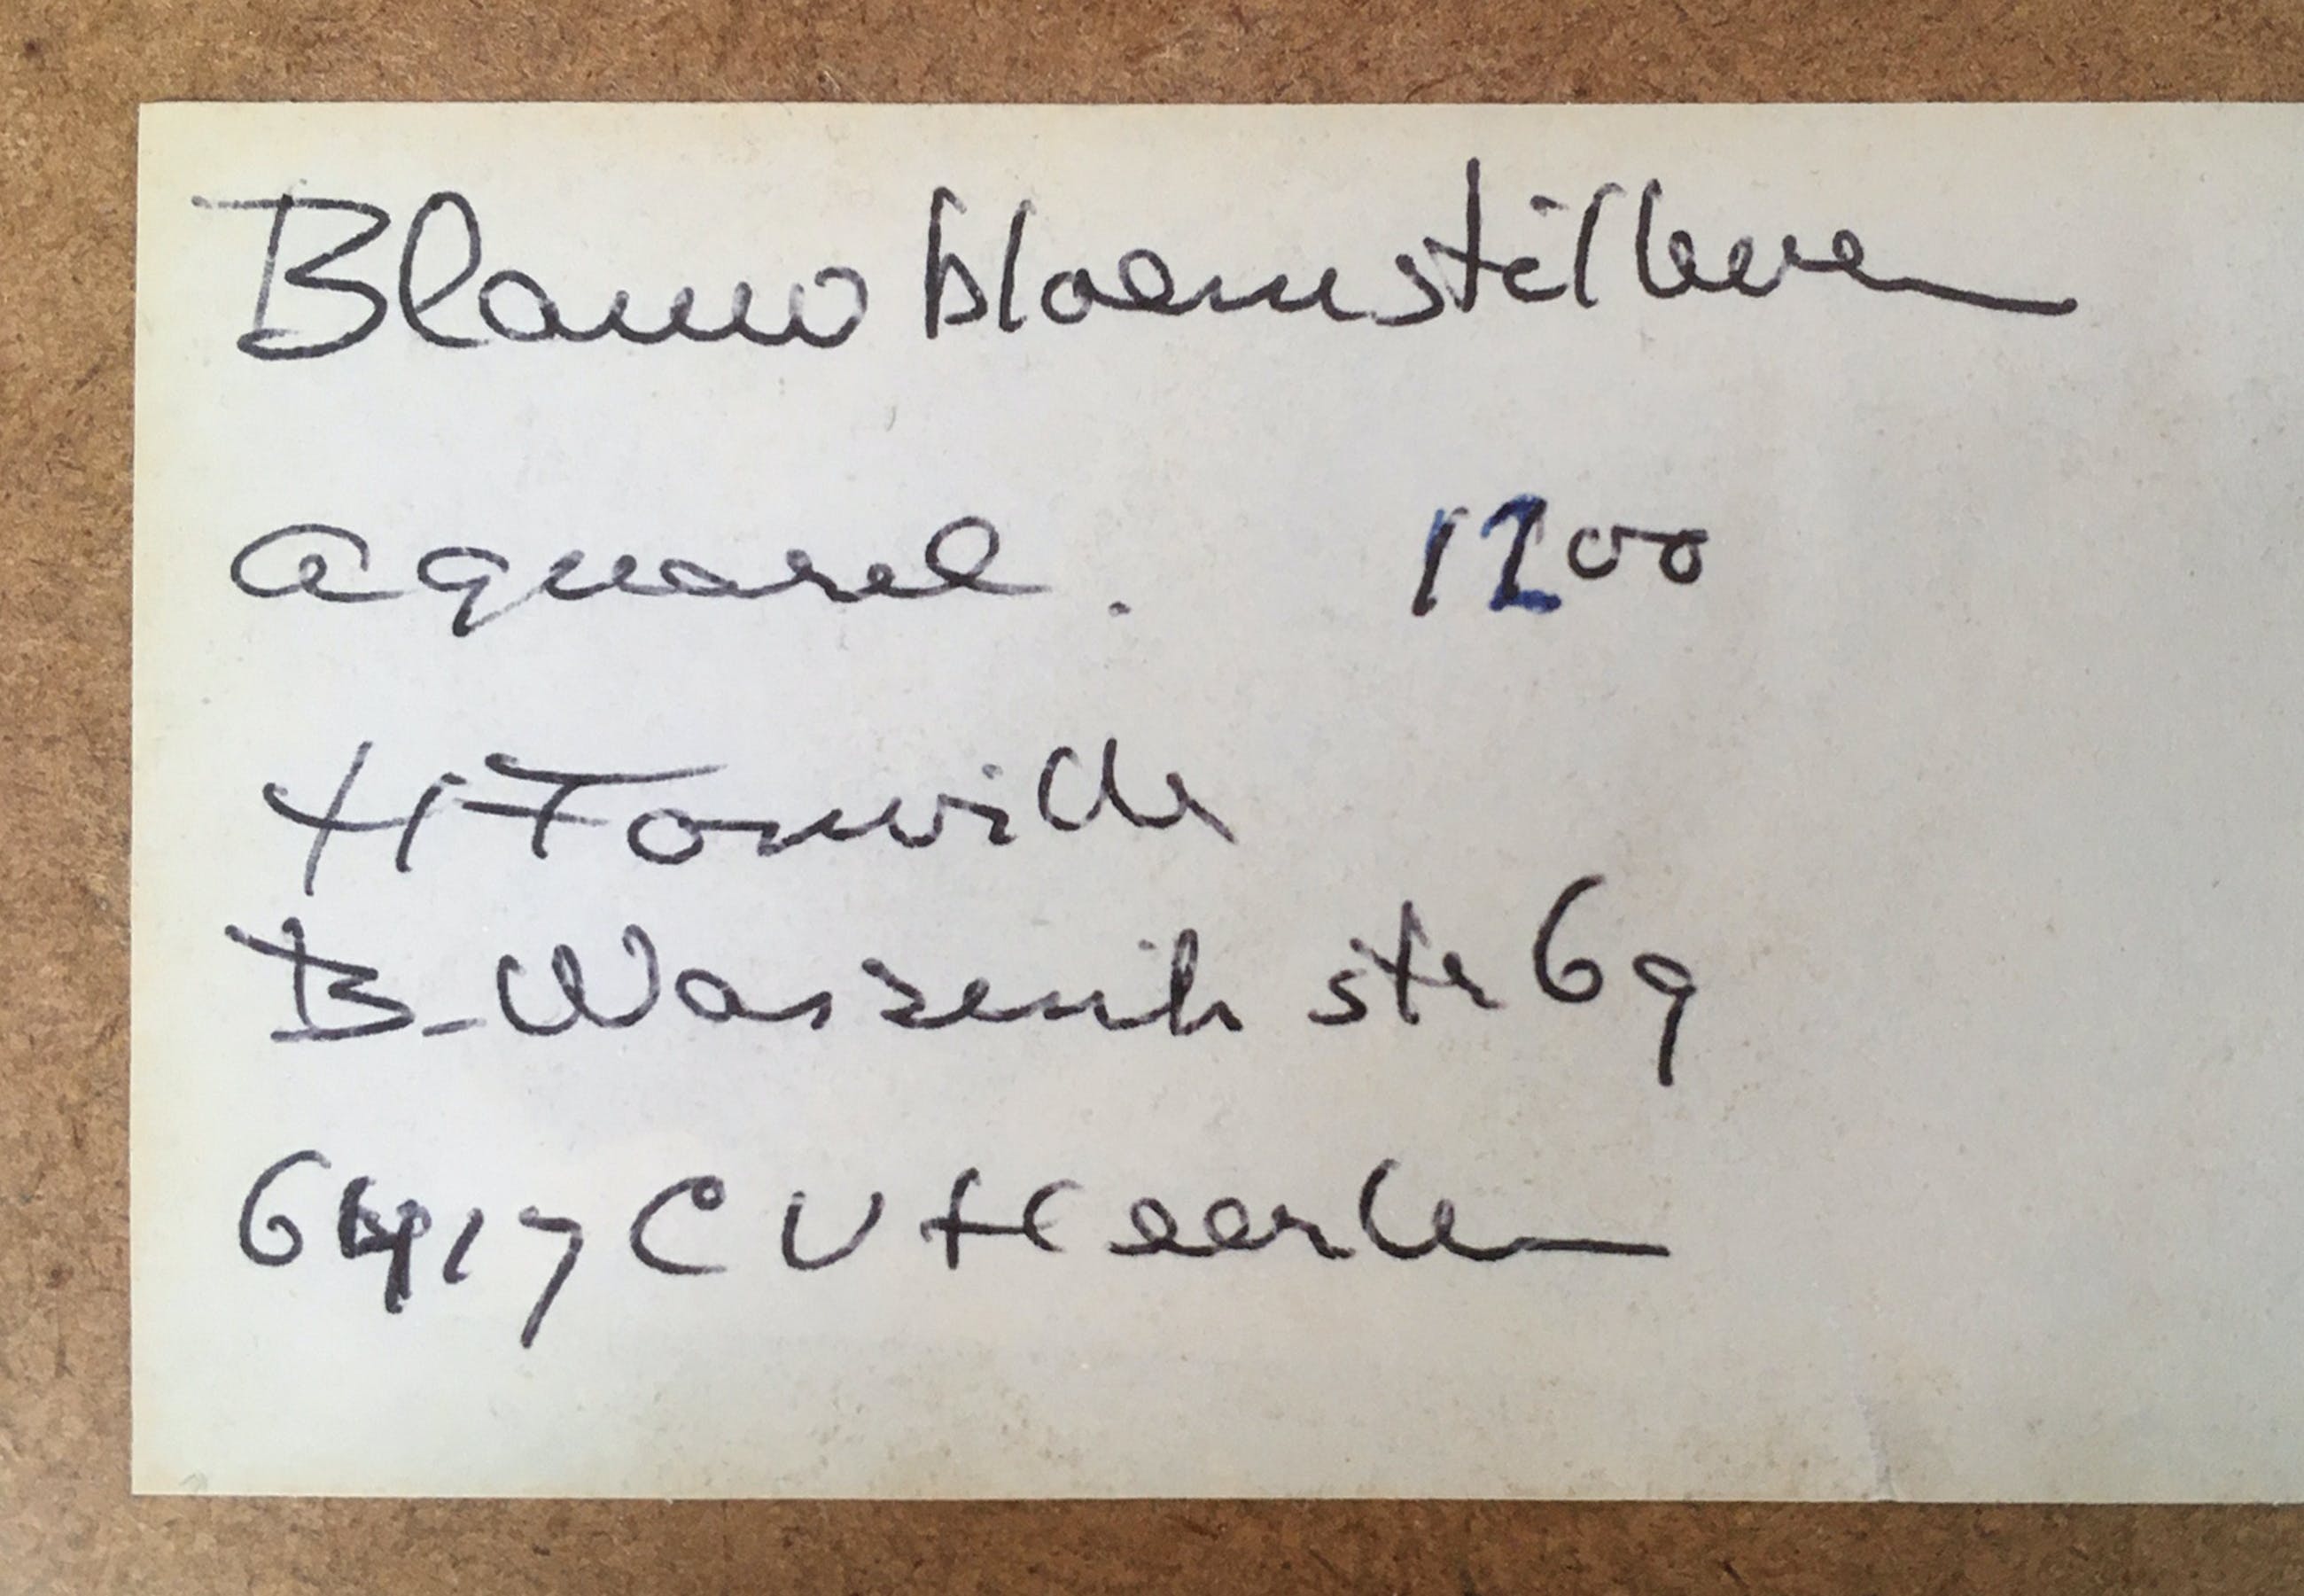 Blauw bloemstilleven
aquarel. 1200
H Tonville
B-Waszink str 69
6417 CV Heerlen